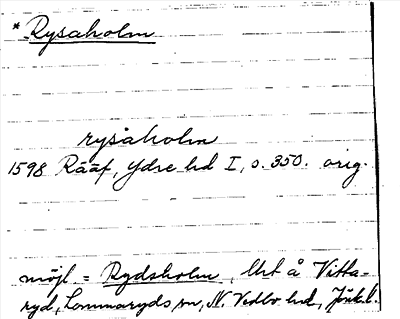 * Rysaholm
rysåholm
1598 Rääf, Ydre hd I, s. 350. orig.
möjl = Rydsholm, lht å Vitta=
ryd, Lommaryds sn, N. Vedbo hd, Jönk.l.